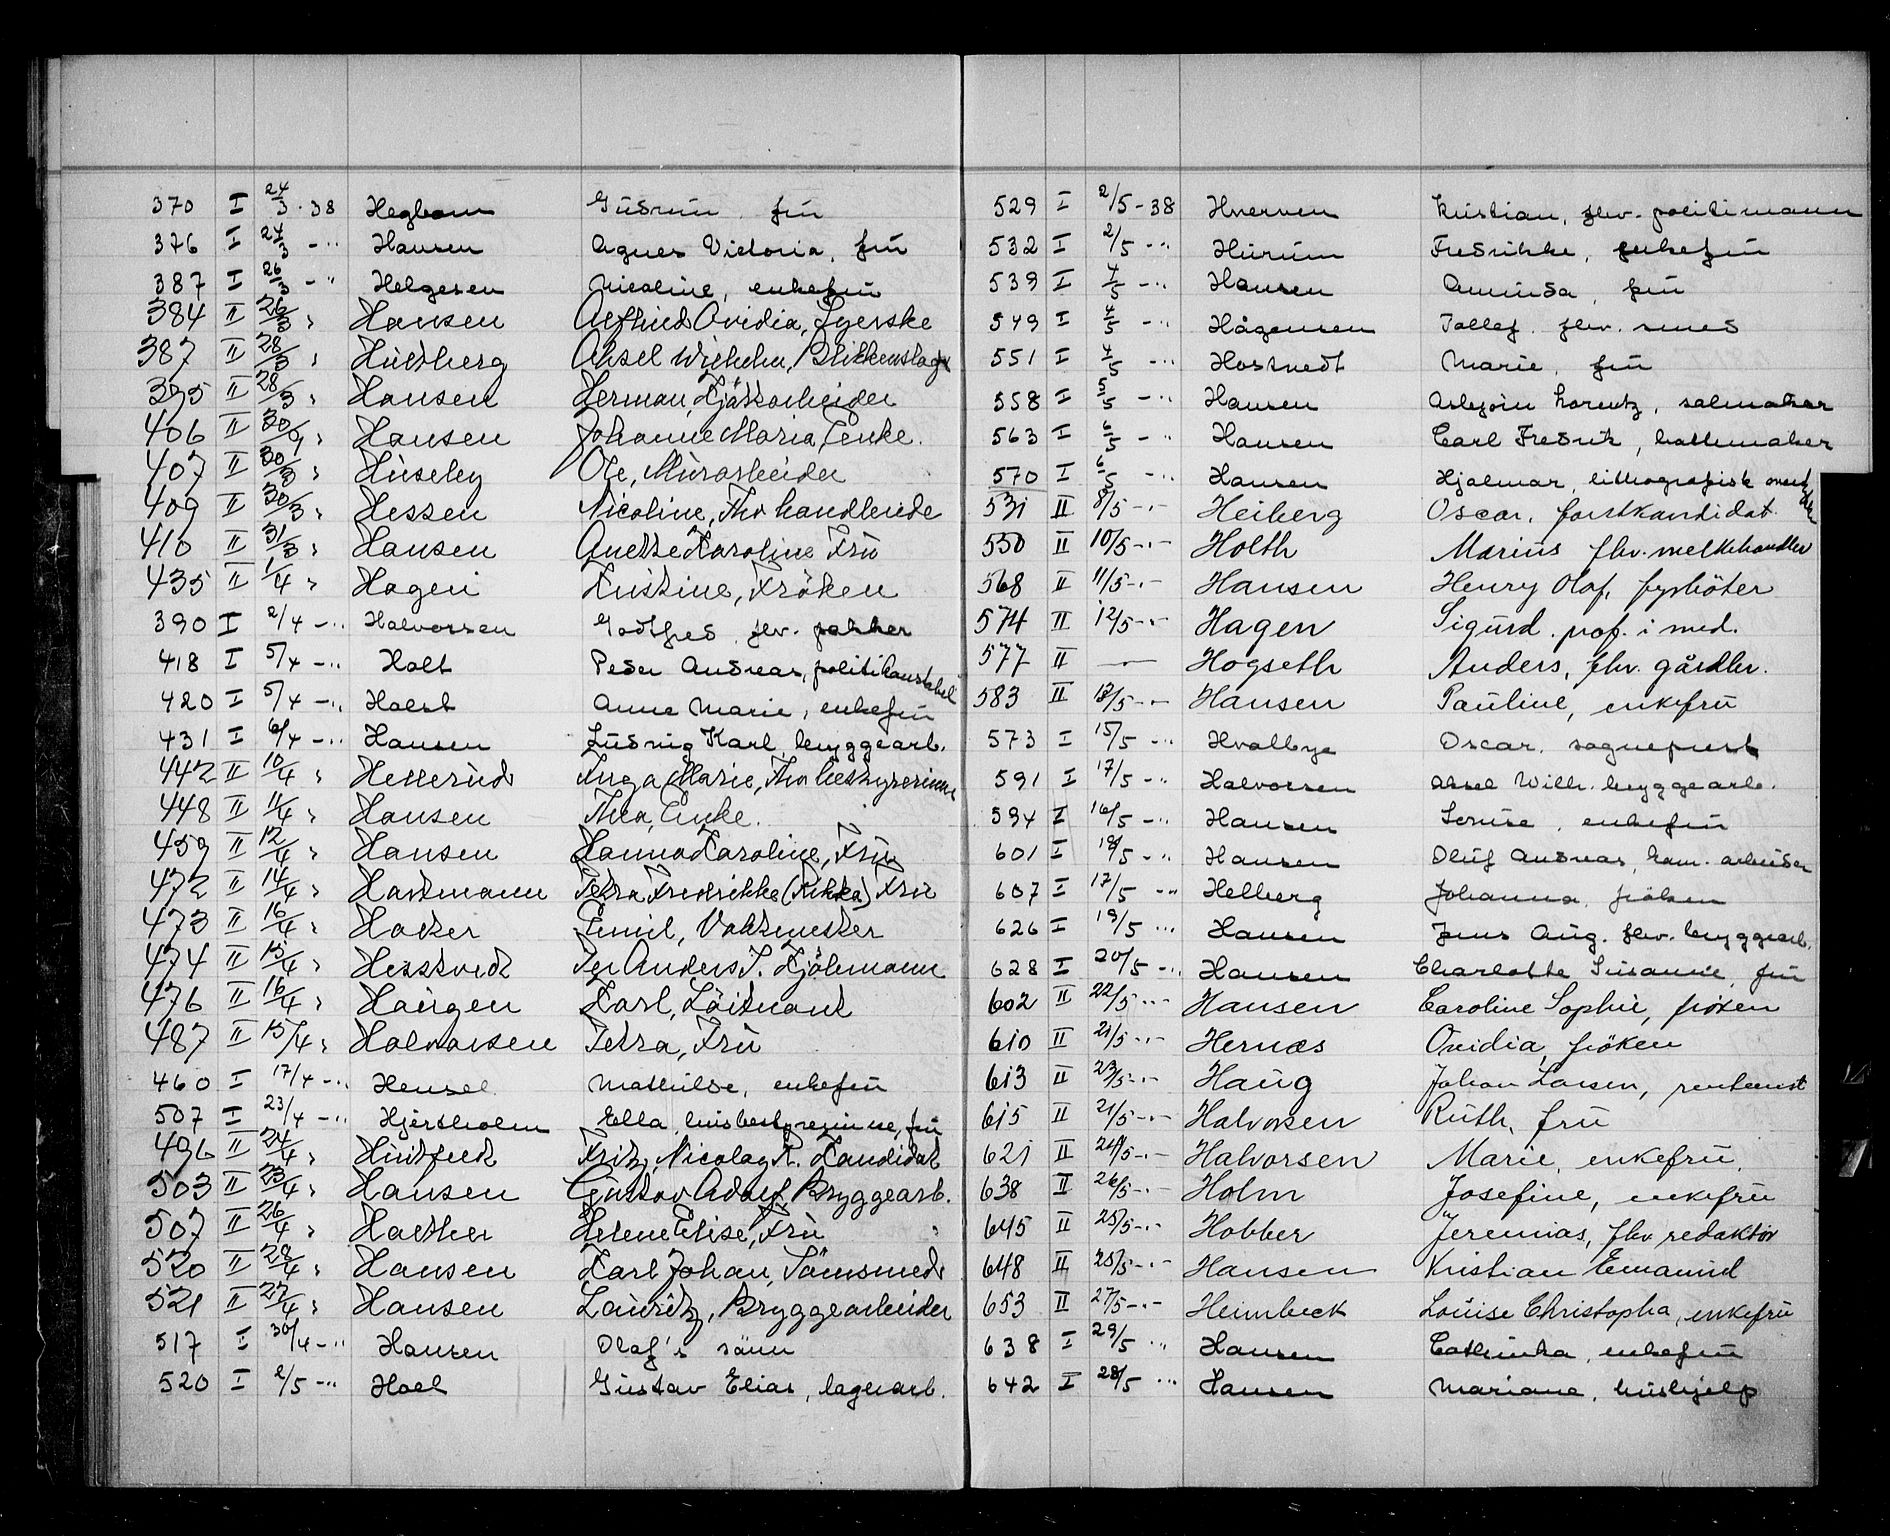 370 I 24/3-38 Hegbom Gudrun, fru
376 I 24/3 -"- Hansen Agnes Victoria, fru
387 I 26/3 -"- Helgesen Nicoline, enkefru
384 II 26/3 " Hansen Ovidia, Syerske
387 II 28/3 " Hultberg Aksel Wilhelm, Blikkenslager
395 II 28/3 " Hansen Herman, Kjøttarbeider
406 II 30/3 " Hansen Johanne Maria, Enke.
407 II 30/3 " Huseby Ole, Murarbeider
409 II 30/3 " Hessen Nicoline, Fhv handlende
410 II 31/3 " Hansen Anette Karoline Fru
435 II 1/4 " Hagen Kristine, Frøken
390 I 2/4 -"- Halvorsen Godtfred, fhv. pakker
418 I 5/4 -"- Holt Peder Andreas, politikonstabel
420 I 5/4 -"- Holst Anne Marie, enkefru
431 I 6/4 -"- Hansen Ludvig Karl, bryggearb.
442 II 10/4 " Hellerud Inga Marie, Fhv bestyrerinne
448 II 11/4 " Hansen Thea, Enke.
459 II 12/4 " Hansen Hanna Karoline, Fru
472 II 14/4 " Hartmann Petra Fredrikke (Rikka) Fru
473 II 16/4 " Holter Emil, Vaktmester
474 II 15/4 " Hesstvedt Per Anders S. Kjölemann
476 II 16/4 " Haugen Karl, Löitnant
487 II 15/4 " Halvorsen Petra, Fru
460 I 17/4 -"- Hensel Mathilde, enkefru
507 I 23/4 -"- Hjertholm Ella, husbestyrerinne, fru
496 II 24/4 " Huitfeldt Fritz, Nicolay R. Kandidat
503 II 23/4 " Hansen Gustav Adolf Bryggearb.
507 II 26/4 " Helene Elise, Fru
520 II 28/4 " Hansen Karl Johan,
521 II 27/4 " Hansen Lauritz, Bryggearbeider
517 I 30/4 -"- Hansen Olaf's sønn
520 I 2/5 -"- Hoel Gustav Elias, lagerarb.
529 I 2/5-38 Hverven Kristian, fhv. politimann
532 I 2/5 -"- Hurum Fredrikke, enkefru
539 I 4/5 -"- Hansen Aminda, fru
549 I 4/5 -"- Hågensen Tollef, fhv. smed
551 I 4/5 -"- Hostvedt Marie, fru
558 I 5/5 -"- Hansen Asbjørn Lorentz, salmaker
563 I 6/5 -"- Hansen Carl Fredrik, hattemaker
570 I 6/5 -"- Hansen Hjalmar, lithografisk
531 II 9/5 -"- Heiberg Oscar, forstkandidat
550 II 10/5 -"- Holth Marius fhv. melkehandler
568 II 11/5 -"- Hansen Henry Olaf, fyrbøter
574 II 12/5 -"- Hagen Sigurd. prof. i med.
577 II — Hogseth Anders, fhv. gårdbr.
583 II 13/5 -"- Hansen Pauline, enkefru
573 I 15/5 -"- Hvalbye Oscar, sogneprest
591 I 17/5 -"- Halvorsen Aksel Wilh. bryggearb.
594 I 16/5 -"- Hansen Lovise, enkefru
601 I 18/5 -"- Hansen Oluf Andreas, kom. arbeider
607 I 17/5 -"- Helberg Johanna, frøken
626 I 19/5 -"- Hansen Jens Aug. fhv. bryggearb.
628 I 20/5 -"- Hansen Charlotte Susanne, fru
602 II 22/5 -"- Hansen Caroline Sophie, frøken
610 II 21/5 -"- Hernæs Ovidia, frøken
613 II 23/5 -"- Haug Johan Larsen,
615 II 21/5 -"- Halvorsen Ruth, fru
621 II 24/5 -"- Halvorsen Marie, enkefru.
638 II 26/5 -"- Holm Josefine, enkefru
645 II 25/5 -"- Hobber Jeremias, fhv. redaktör
648 II 25/5 -"- Hansen Kristian Emanuel
653 II 27/5 -"- Heimbeck Louise Christopha, enkefru
638 I 29/5 -"- Hansen Cathinka, enkefru
642 I 28/5 -"- Hansen Mariane, hushjelp